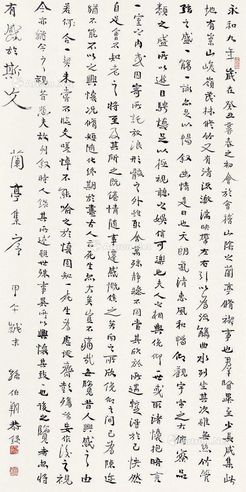 永和九年歲在癸丑暮春之初會於會稽山陰之蘭亭修禊事也羣賢畢至少長咸集此
地有崇山峻嶺茂林修竹又有清流激湍映帶左右引以為流觴曲水列坐其次雖無絲竹管
弦之盛一觴一詠亦足以暢敘幽情是日也天朗氣清惠風和暢仰觀宇宙之大俯察品
類之盛所以遊目騁懷足以極視聽之娛信可樂也夫人之相與俯仰一世或取諸懷抱晤言
一室之內或因寄所託放浪形骸之外雖取舍萬殊靜躁不同當其欣於所遇暫得於己快然
自足曾不知老之將至及其所之既倦情隨事遷感慨係之矣向之所欣俛仰之間已為陳迹
猶不能不以之興懷況修短隨化終期於盡古人云死生亦大矣豈不痛哉每覽昔人興感之由
若合一契未嘗不臨文嗟悼不能喻之於懷固知一死生為虛誕齊彭殤為妄作後之視
今亦猶今之視昔悲夫故列敘時人錄其所述雖世殊事異所以興懷其致一也後之覽者亦將
有感於斯文 蘭亭集序 甲午 孫伯翔